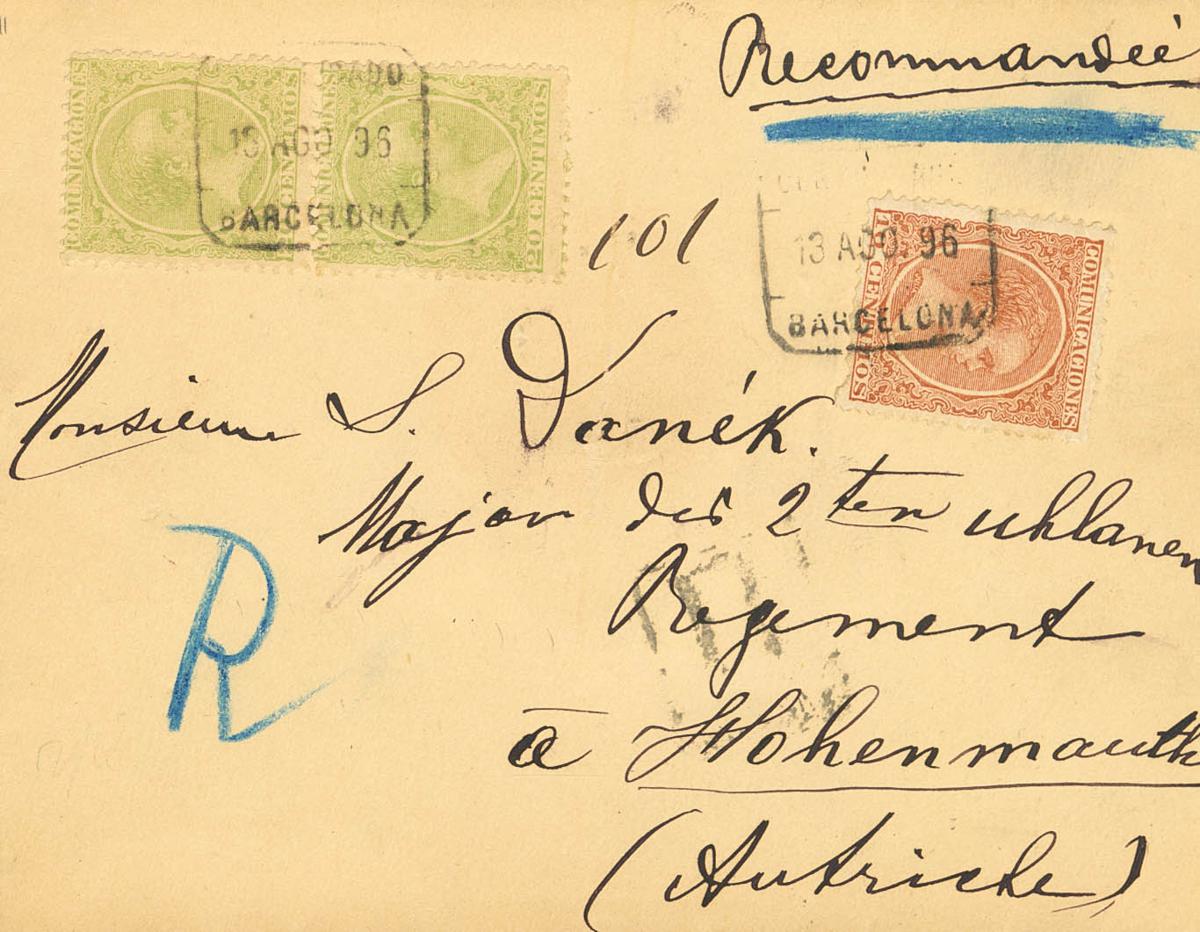 Recommandée
COMUNICACIONES
CENTIMOS
COMUNICACIONES
20 CENTIMOS
13 AGO 96
BARCELONA
101
13 AGO. 96
BARCELONA
CENTIMOS
COMUNICACIONES
Monsieur S. Danék.
Major des 2ten Uhlanen
Regement
à Hohenmauth
(Autriche)
R